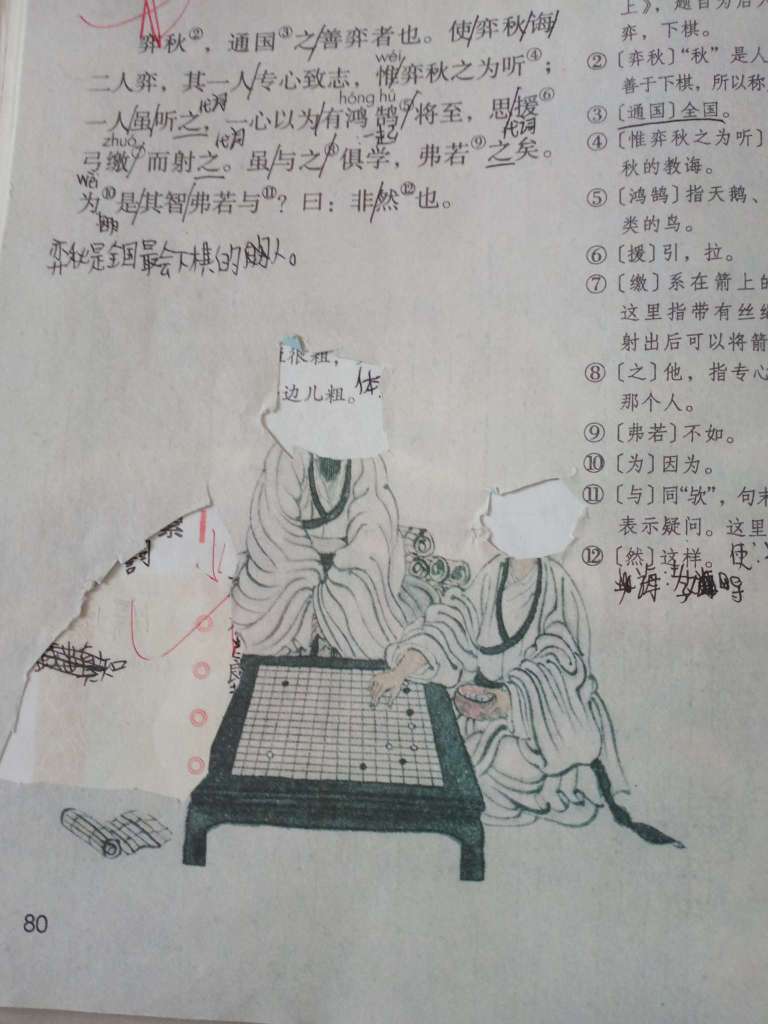 弈秋②，通国③之善弈者也。使弈秋诲
wéi
二人弈，其一人专心致志，惟弈秋之为听④；
hóng hú
一人虽听之，一心以为有鸿鹄⑤将至，思援⑥
代词
代词
一起
代词
zhuó
弓缴⑦而射之。虽与之⑧俱学，弗若⑨之矣。
wèi
为⑩是其智弗若与⑪？曰：非然⑫也。
弈秋是全国最会下棋的人。
很粗，
边儿粗。体
上》，题目为后
弈，下棋。
②〔弈秋〕“秋”是人
善于下棋，所以称
③〔通国〕全国。
④〔惟弈秋之为听〕
秋的教诲。
⑤〔鸿鹄〕指天鹅、
类的鸟。
⑥〔援〕引，拉。
⑦〔缴〕系在箭上的
这里指带有丝
射出后可以将箭
⑧〔之〕他，指专心
那个人。
⑨〔弗若〕不如。
⑩〔为〕因为。
⑪〔与〕同“欤”，句末
表示疑问。这里
⑫〔然〕这样。使：
诲：
80